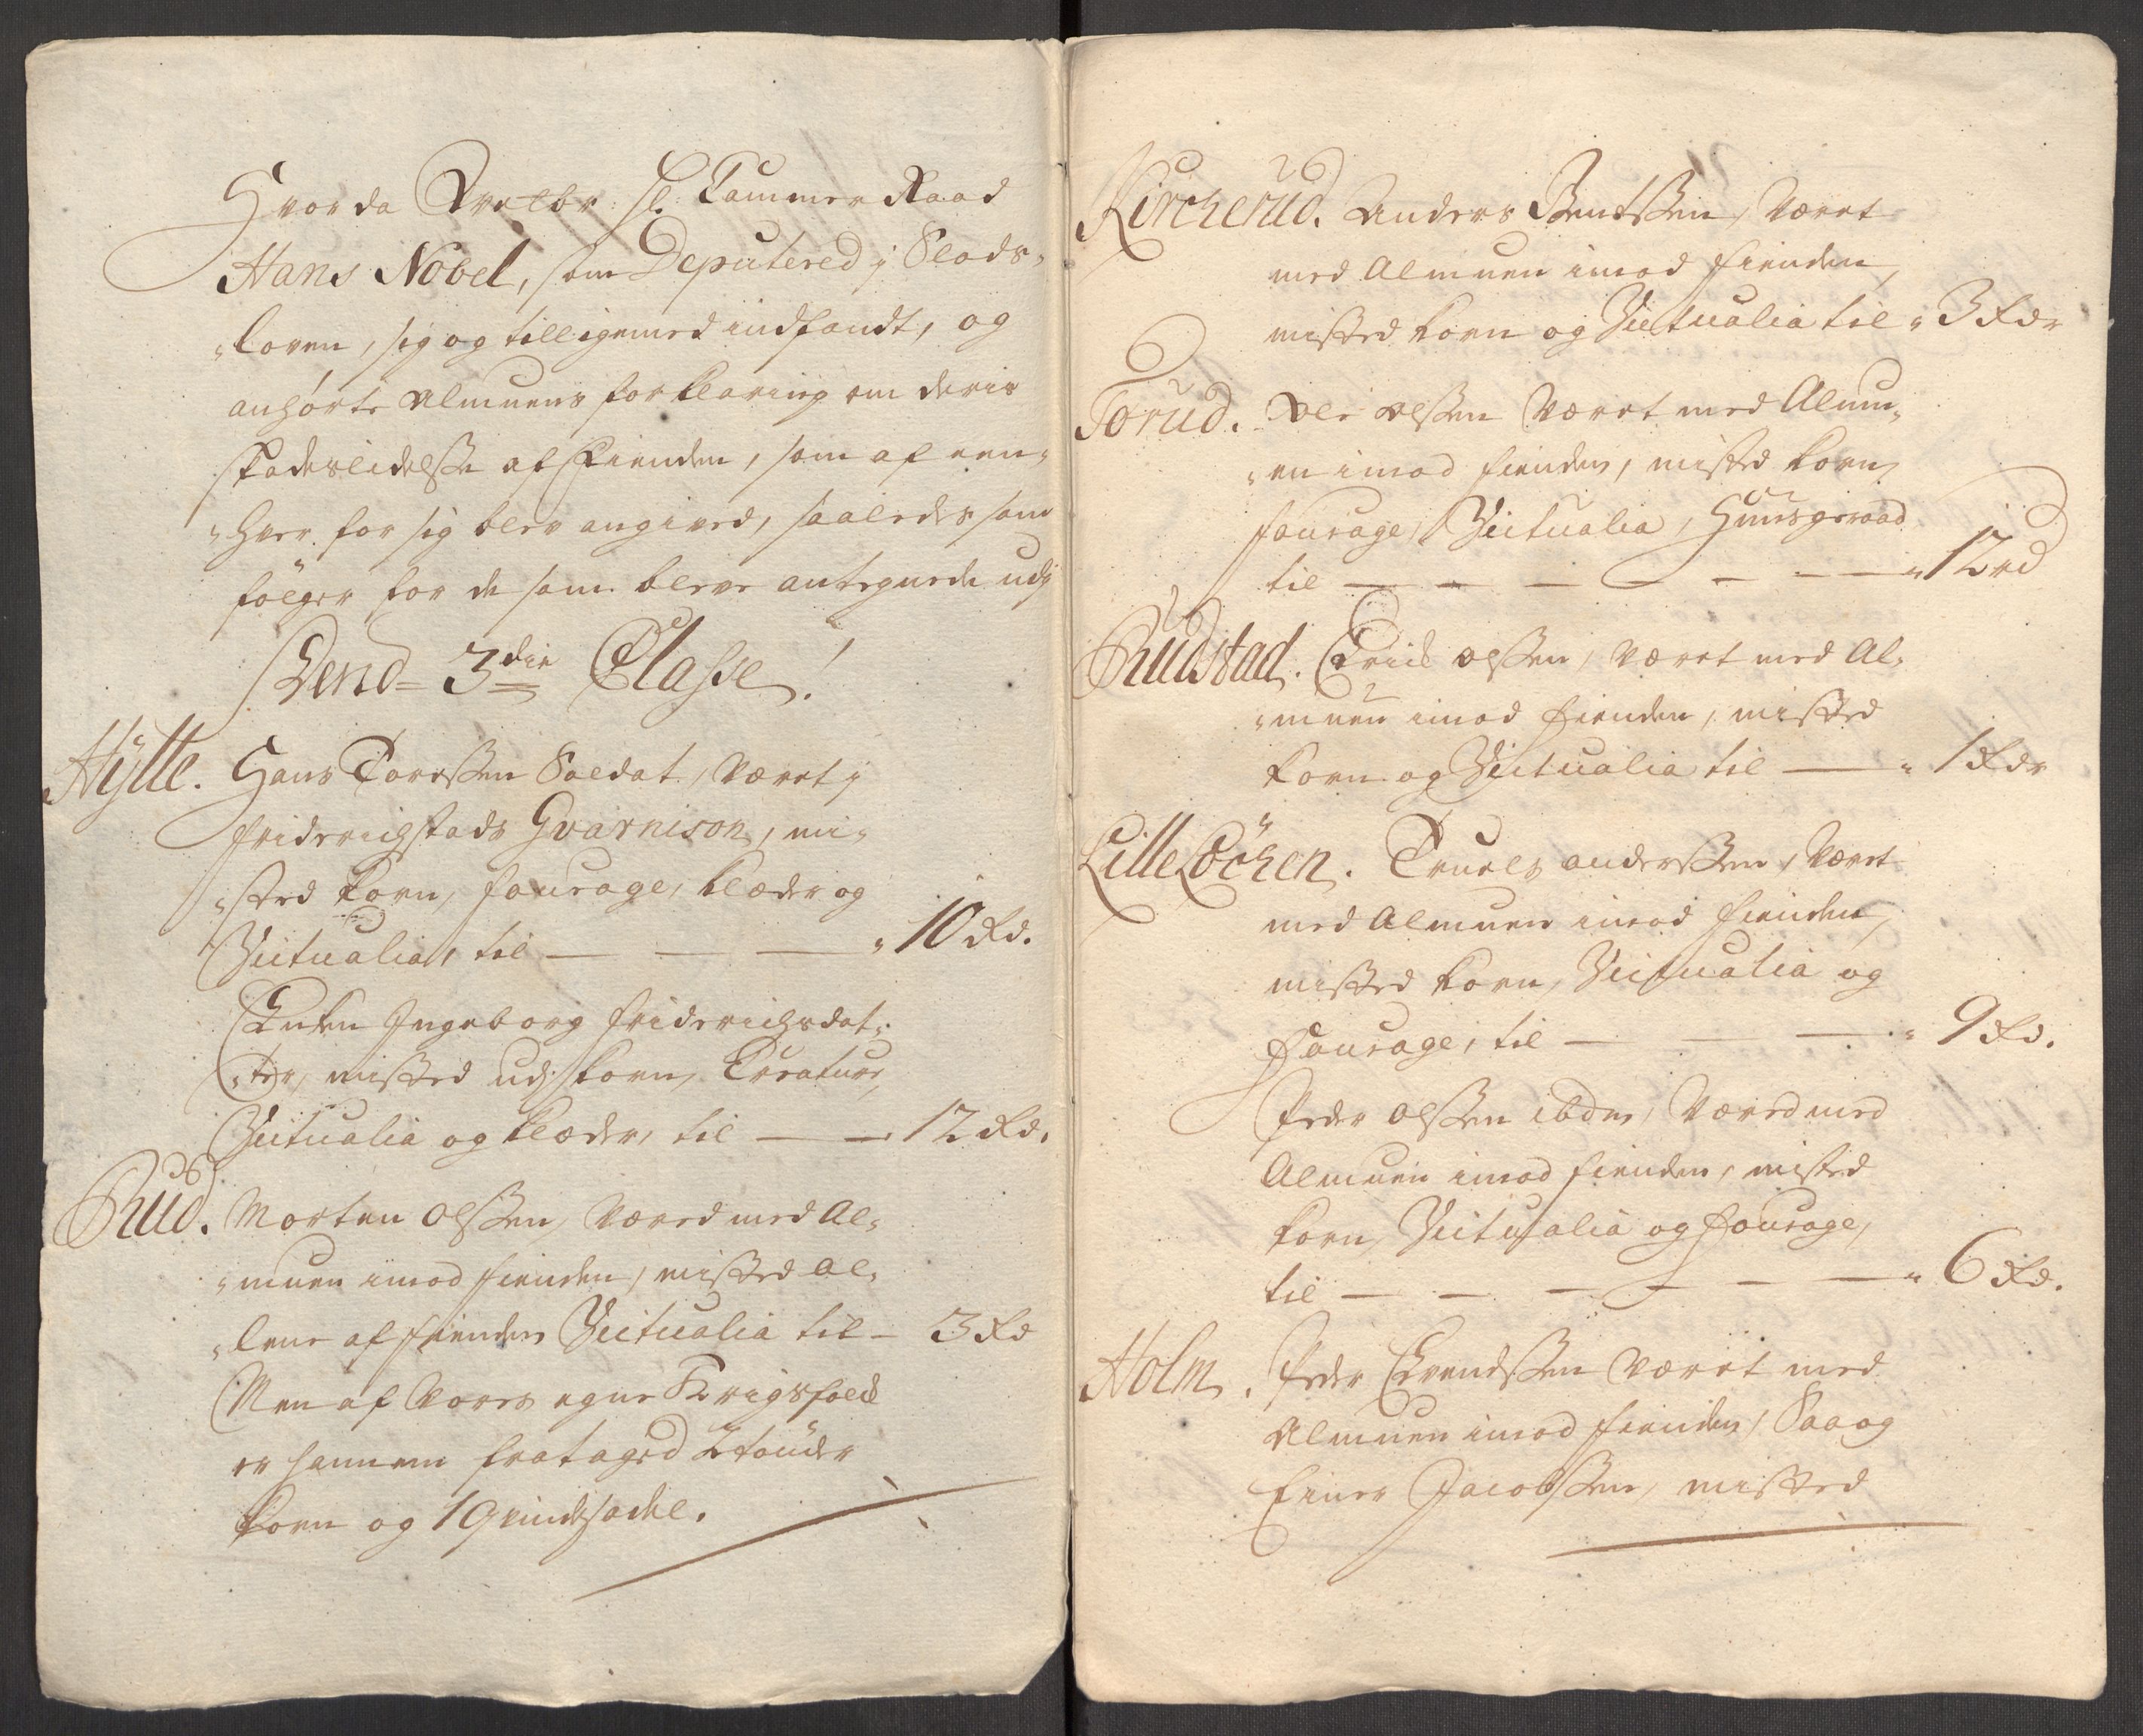 Hvor da Hr. Cammer Raad
Hans Nobel, som Deputered j Slods-
loven, sig og tilligemed indfandt, og
anhörte Almuens forklaring om deris
skadeslidelsse af Fienden, som af een-
hver for sig blev angived, saaledes som
fölger for de som bleve antegnede udj
Dend 3die Classe!
Hÿtte. Hans Toressen Soldat, Været j
Friderichstads Gvarnison, mi-
sted korn, fourage, klæder og
Victualia, til — — — 10 Rd.
Enken Ingeborg Friderichsdat-
ter, misted udj korn, Creature,
Victualia og klæder, til — — 12 Rd.
Rud. Morten Olssen, Væred med Al-
muen imod fienden, misted al-
lene af fienden Victualia til — 3 Rd
Men af Vores egne Krigsfolck
er hannem frataged 2 tönder
korn og 1 Qvindesadel.
Kircherud. Anders Bentssen, Været
med Almuen imod fienden,
misted korn og Victualia til 3 Rdr
Torud. Ole Olssen Været med Almu-
en imod fienden, misted korn,
fourage, Victualia, Huusgeraad
til — — — — — — 12 rd
Rudstad. Erick Olssen, Været med Al-
muen imod fienden, misted
korn og Victualia til — 1 Rdr
Lille Löchen. Truels Anderssen, Været
med Almuen imod fienden,
misted korn, Victualia og
Fourage, til — — — 9 Rd.
Peder Olssen ibdm, Væred med
Almuen imod fienden, misted
korn, Victualia og fourage,
til — — — — — — 6 Rd.
Holm. Peder Svendssen Været med
Almuen imod fienden, Saa og
Einer Jacobssen, misted